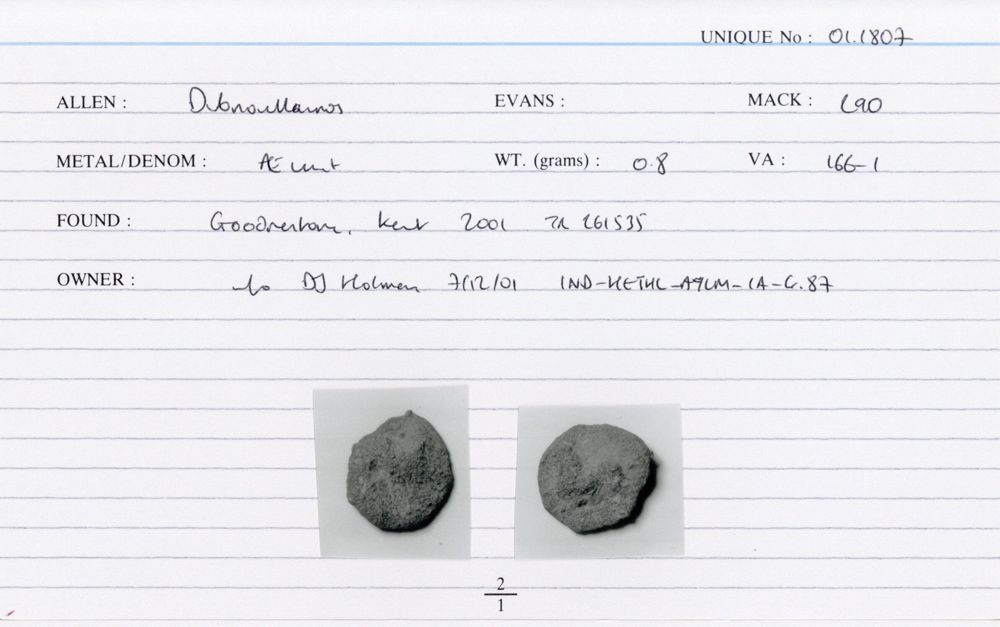 UNIQUE No : 01.1807
ALLEN : Dubnovellaunos EVANS : MACK : 290
METAL/DENOM : Æ unit WT. (grams) : 0.8 VA : 166-1
FOUND : Goodnestone, Kent 2001 TR 261535
OWNER : to DJ Holman 7/12/01
2
1